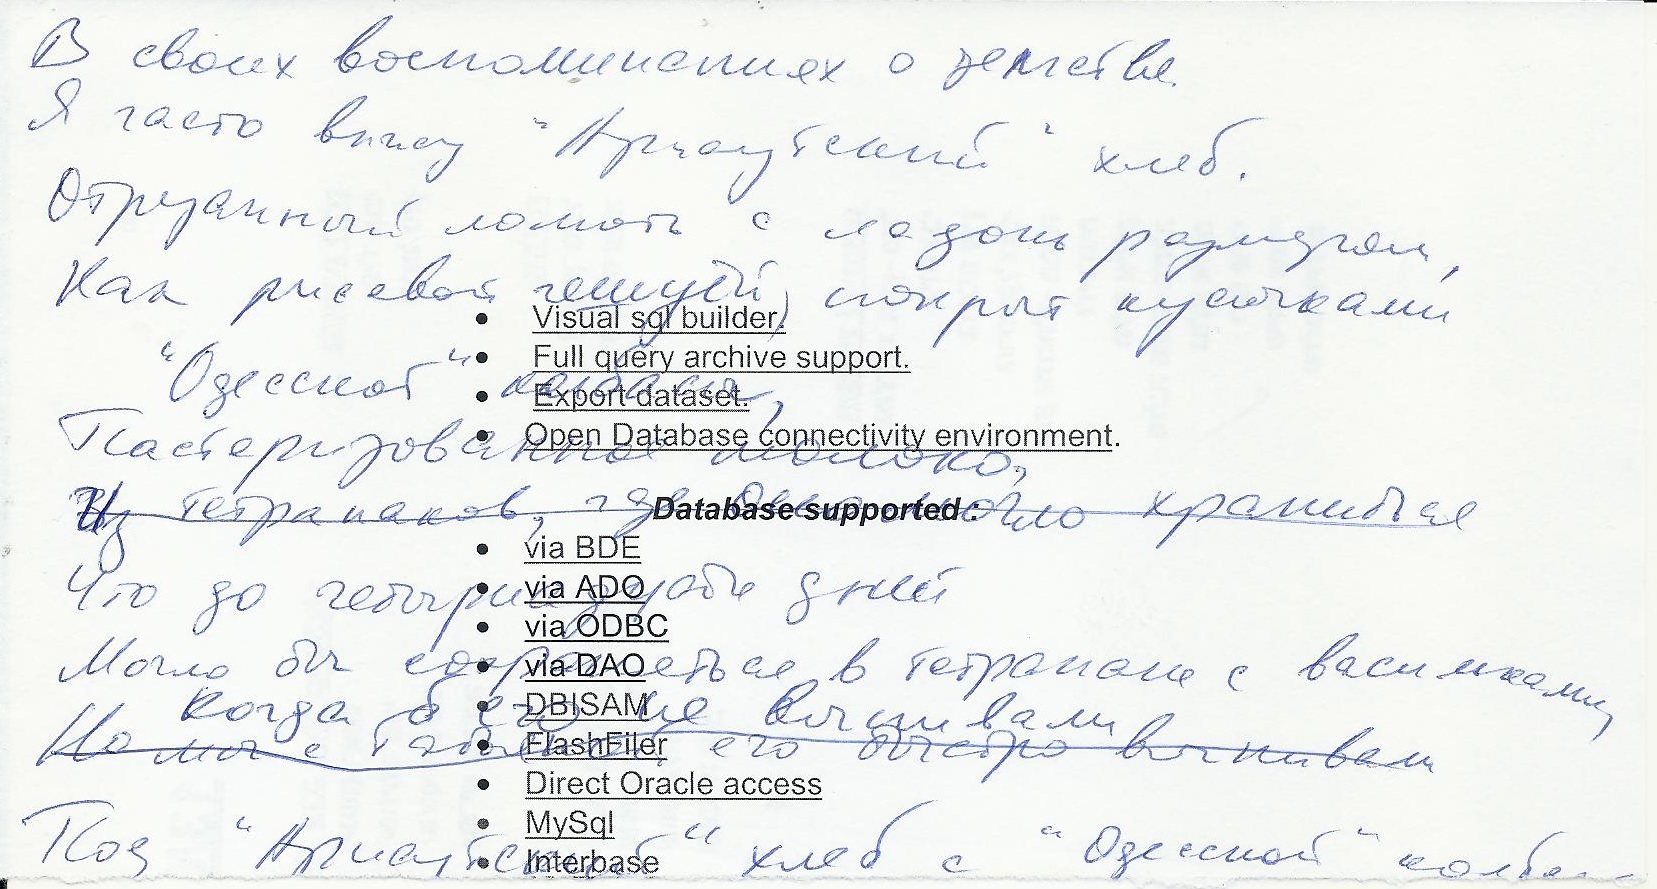 В своих воспоминаниях о детстве
Я часто вижу "Арнаутский" хлеб.
Отрезанный ломоть с ладонь размером,
Как рисовой чешуёй, покрыт кусочками
• Visual sql builder.
• Full query archive support.
"Одесской" колбасы,
• Export dataset.
Пастеризованное молоко,
• Open Database connectivity environment.
Из тетрапаков, где оно могло храниться
Database supported :
• via BDE
Что до четырнадцати дней
• via ADO
• via ODBC
Могло бы сохраняться в тетрапаке с васильками,
• via DAO
Когда б его не выпивали
• DBISAM
Но мы с его быстро выпивали
• FlashFiler
• Direct Oracle access
• MySql
Под "Арнаутский" хлеб с "Одесской"
• Interbase